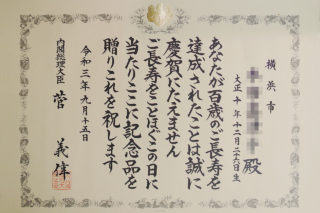 横浜市
殿
大正十年十二月二十六日生
あなたが百歳のご長寿を
達成されたことは誠に
慶賀にたえません
ご長寿をことほぐこの日に
当たりここに記念品を
贈りこれを祝します
令和三年九月十五日
内閣総理大臣 菅 義偉